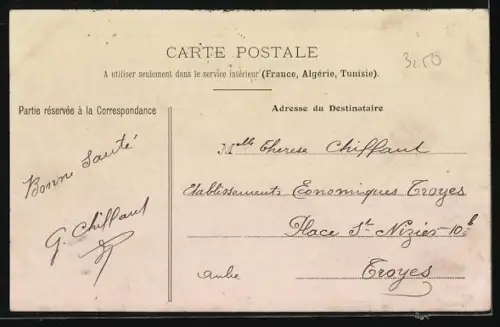 CARTE POSTALE
3.50
A utiliser seulement dans le service intérieur (France, Algérie, Tunisie).
Partie réservée à la Correspondance
Adresse du Destinataire
Bonne Santé
G. Chiffaut
Mlle Therese Chiffaut
Etablissements Eonomiques Troyes
Place St Nizier-10b
Aube
Troyes